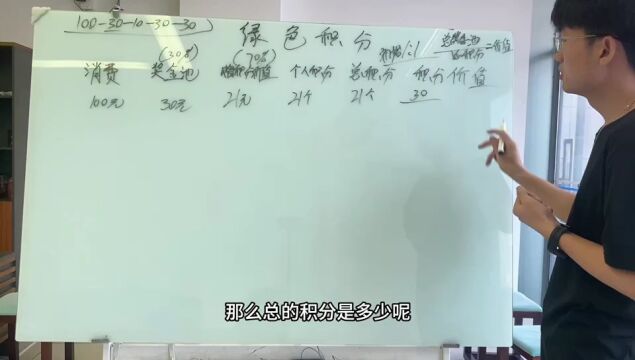 100-30-10-30-30
绿色积分
(30%) (70%) 积分1:1 总奖金池/总积分=价值
消费 奖金池 积分价值 个人积分 总积分 积分价值
100元 30元 21元 21个 21个 30
那么总的积分是多少呢